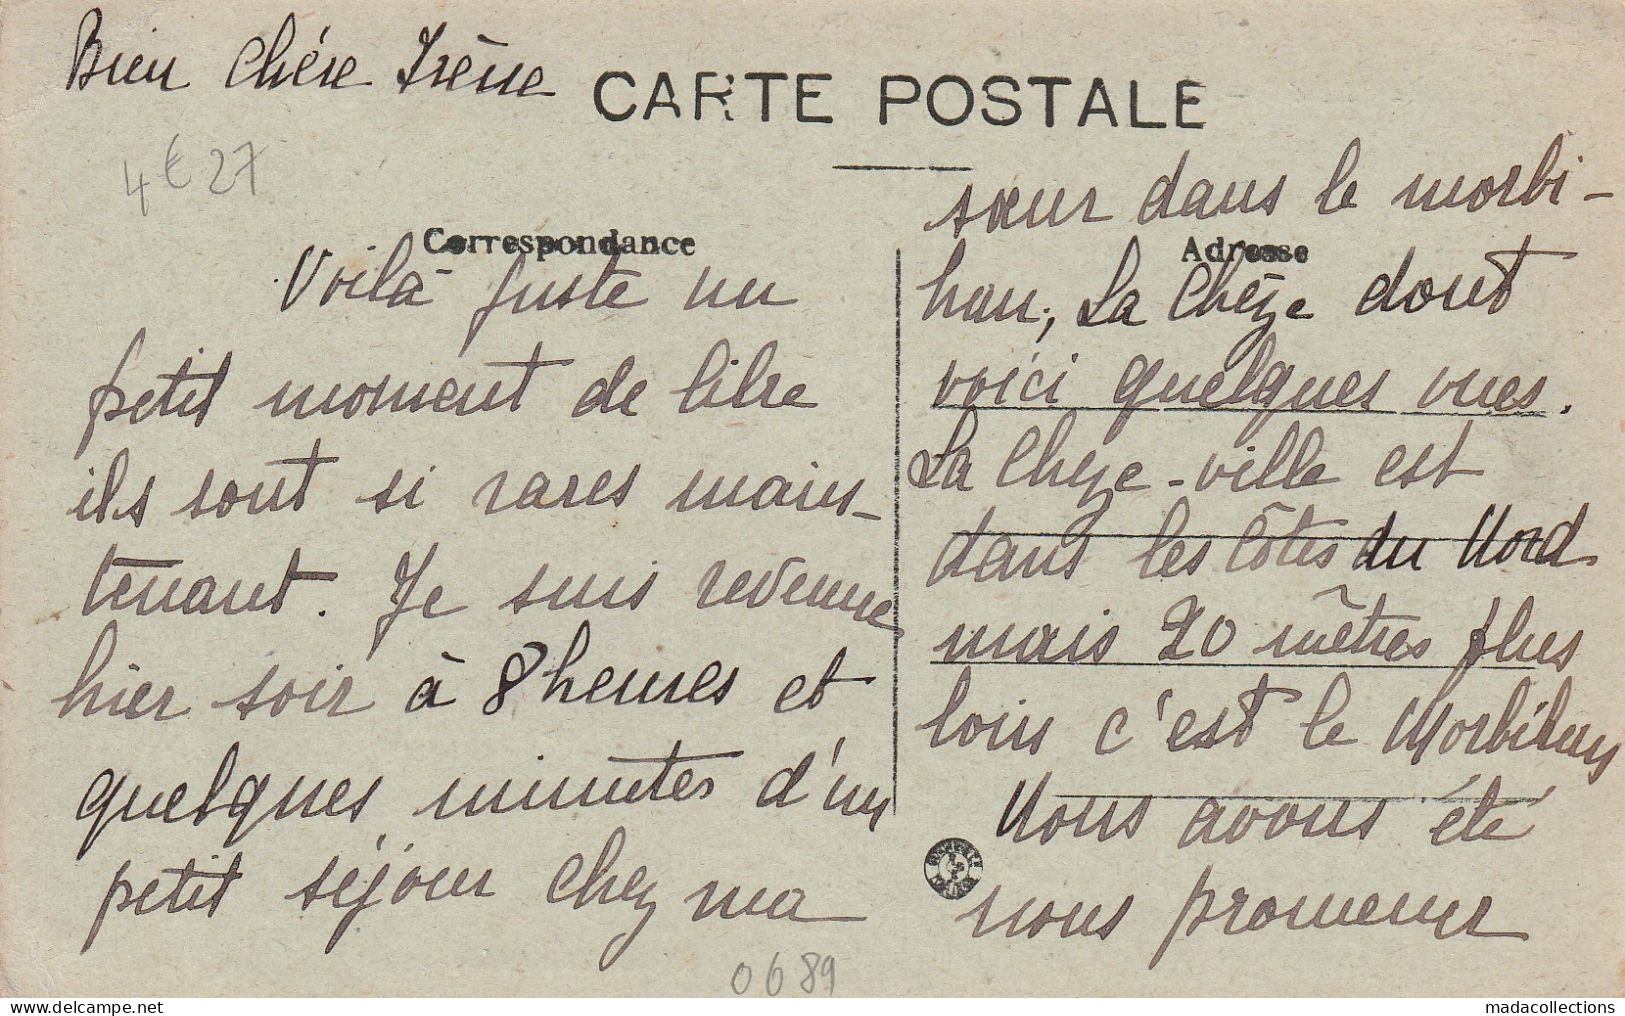 Bien Chére Irène
CARTE POSTALE
4€27
Correspondance
Voilà juste un
petit moment de libre
ils sont si rares main-
tenant. Je suis revenue
hier soir à 8 heures et
quelques minutes d'un
petit séjour chez ma
Adresse
sœur dans le morbi-
han, La Chèze dont
voici quelques vues.
La Cheze-ville est
dans les Côtes du Nord
mais 20 mêtres plus
loin c'est le Morbihan
Nous avons été
nous promener
0689
madacollections